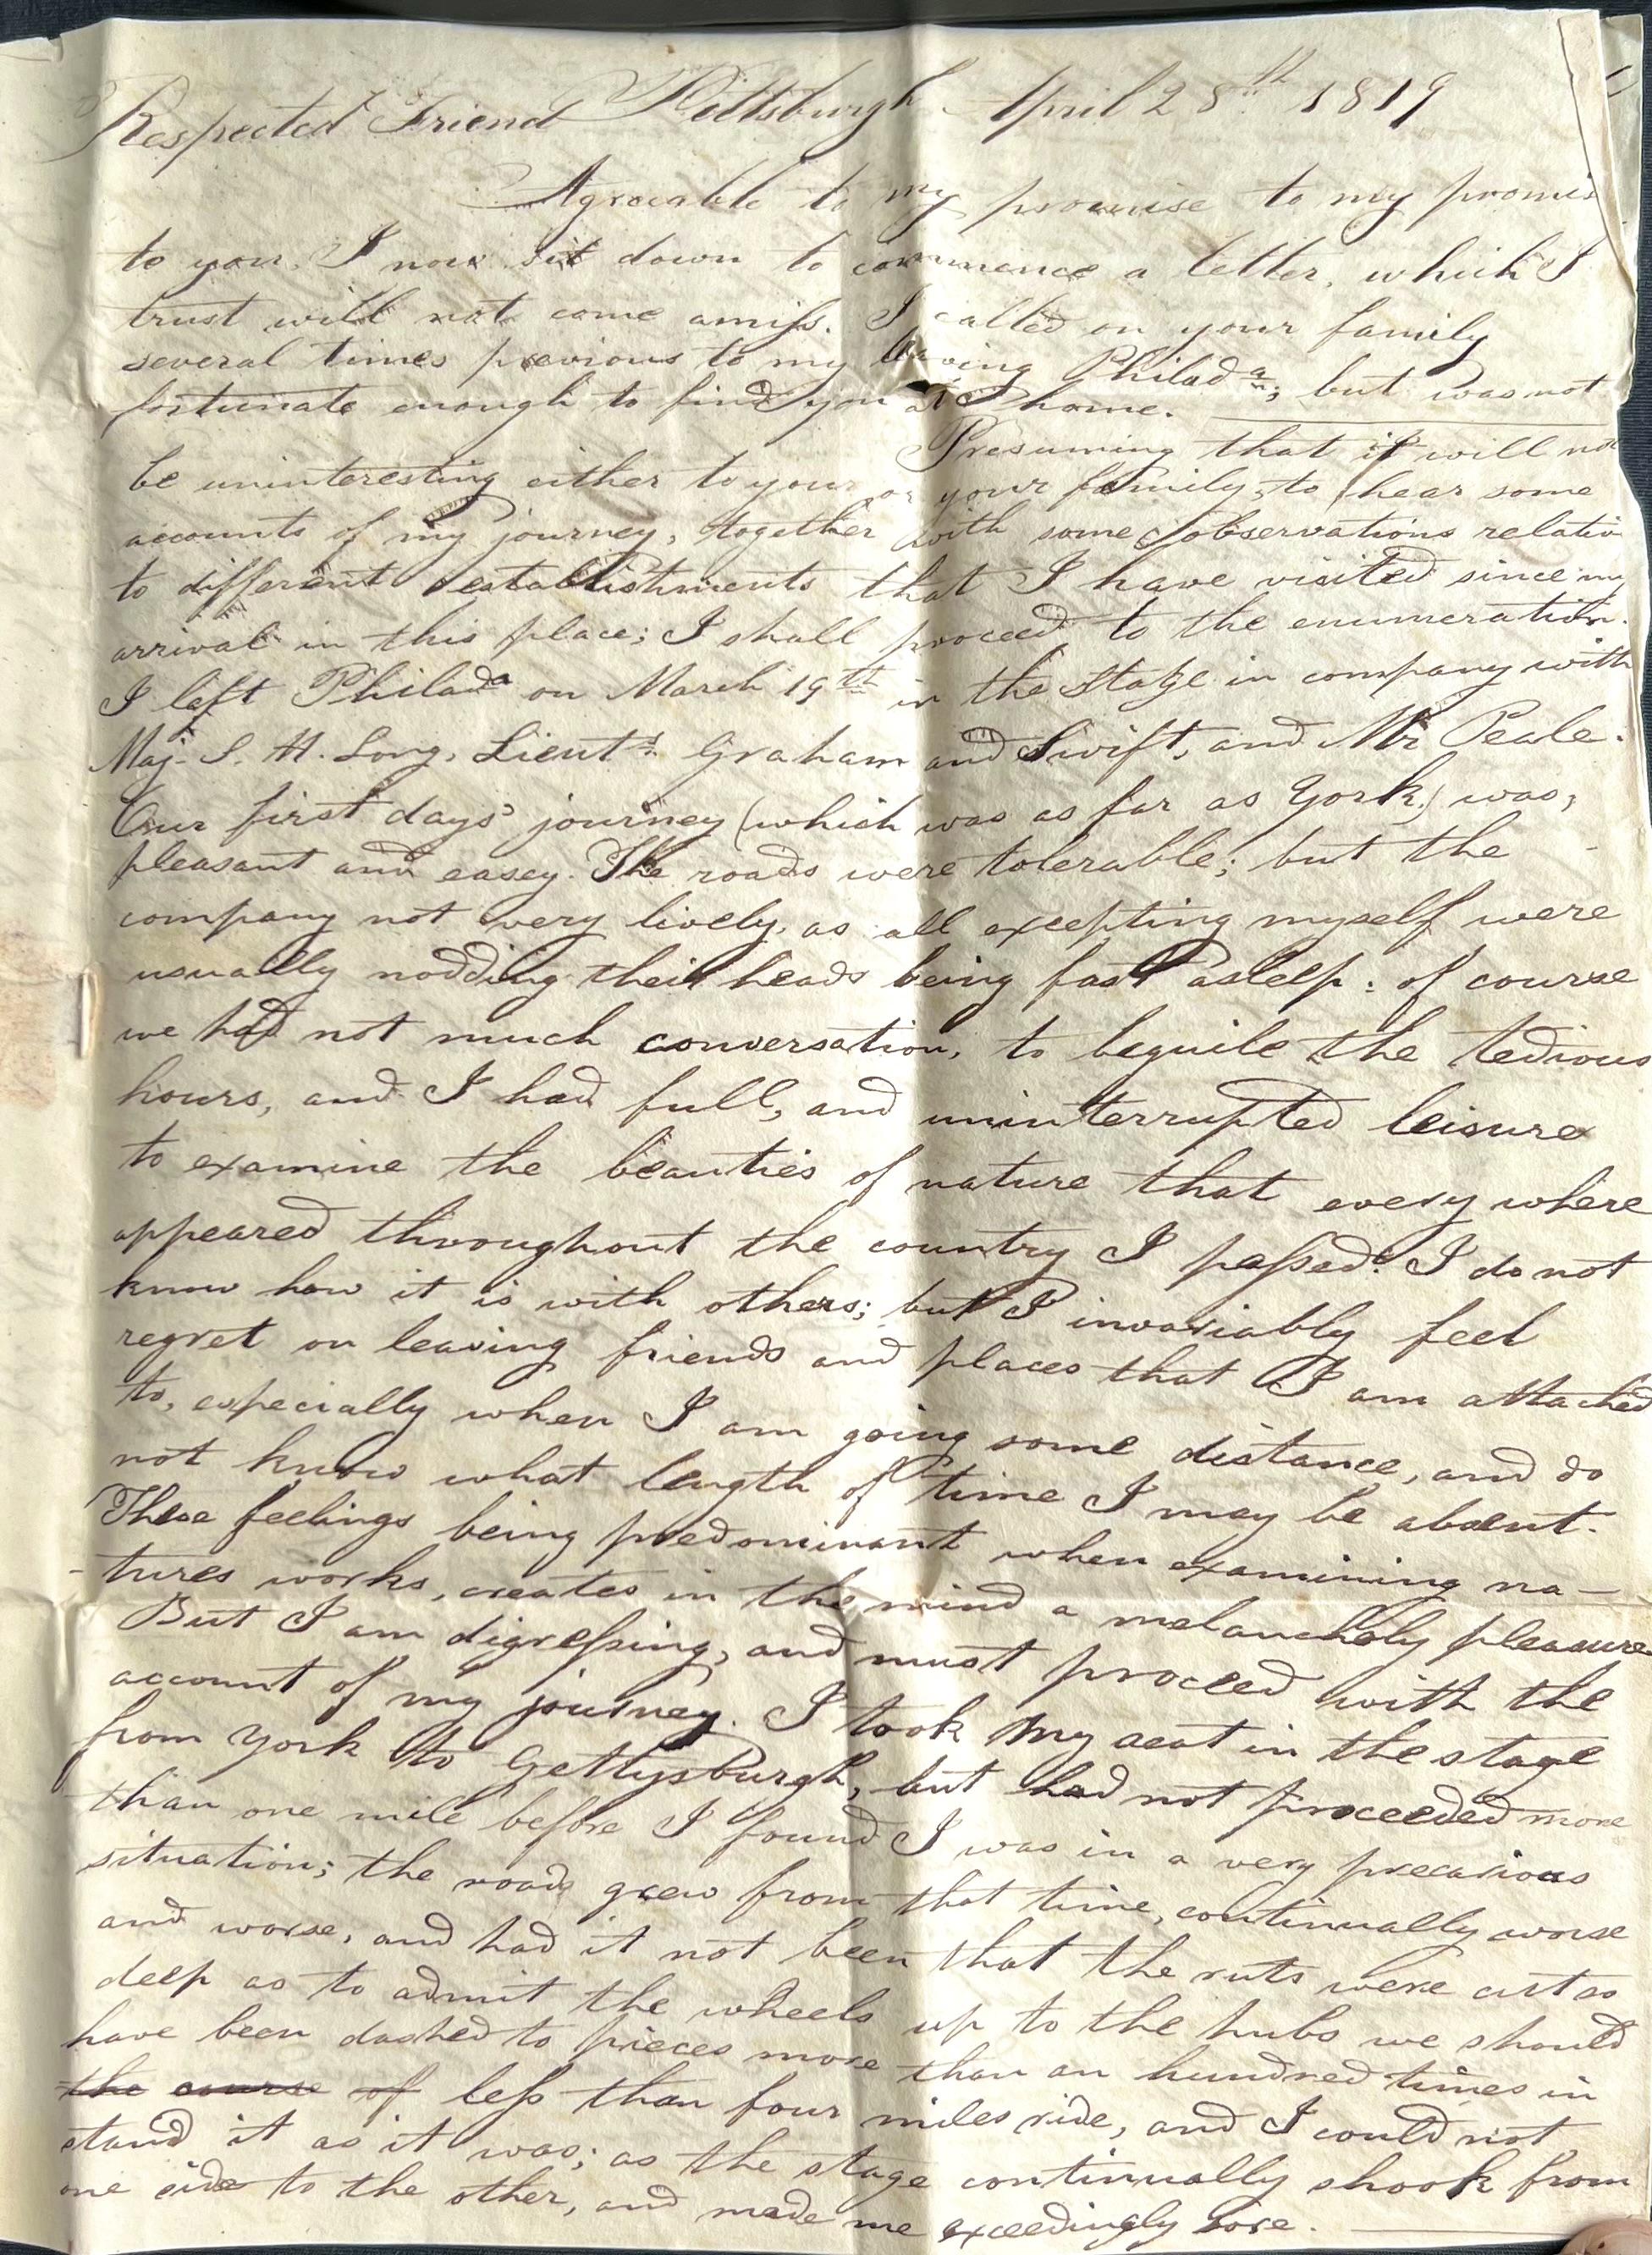 Pittsburgh April 28th 1819
Respected Friend
Agreeable to my promise to my promis
to you, I now sit down to commence a letter, which I
trust will not come amiss. I called on your family
several times previous to my leaving Philada; but was not
fortunate enough to find you at home.
Presuming that it will not
be uninteresting either to your or your family, to hear some
accounts of my journey, together with some observations relativ
to different establishments that I have visited since my
arrival in this place; I shall proceed to the enumeration.
I left Philada on March 19th in the stage in company with
Maj. S. H. Long, Lieuts Graham and Swift, and Mr Peale.
Our first days' journey (which was as far as York) was,
pleasant and easey. The roads were tolerable; but the
company not very lively, as all excepting myself were
usually nodding their heads being fast asleep: of course
we had not much conversation, to beguile the tedious
hours, and I had full, and uninterrupted leisure
to examine the beauties of nature that every where
appeared throughout the country I passed. I do not
know how it is with others; but I invariably feel
regret on leaving friends and places that I am attached
to, especially when I am going some distance, and do
not know what length of time I may be absent.
These feelings being predominant when examining na-
-tures works, creates in the mind a melancholy pleasure
But I am digressing, and must proceed with the
account of my journey. I took my seat in the stage
from York to Gettysburgh, but had not proceeded more
than one mile before I found I was in a very precarious
situation; the roads grew from that time, continually worse
and worse, and had it not been that the ruts were cut as
deep as to admit the wheels up to the hubs we should
have been dashed to pieces more than an hundred times in
the course of less than four miles ride, and I could not
stand it as it was; as the stage continually shook from
one side to the other, and made me exceedingly sore.